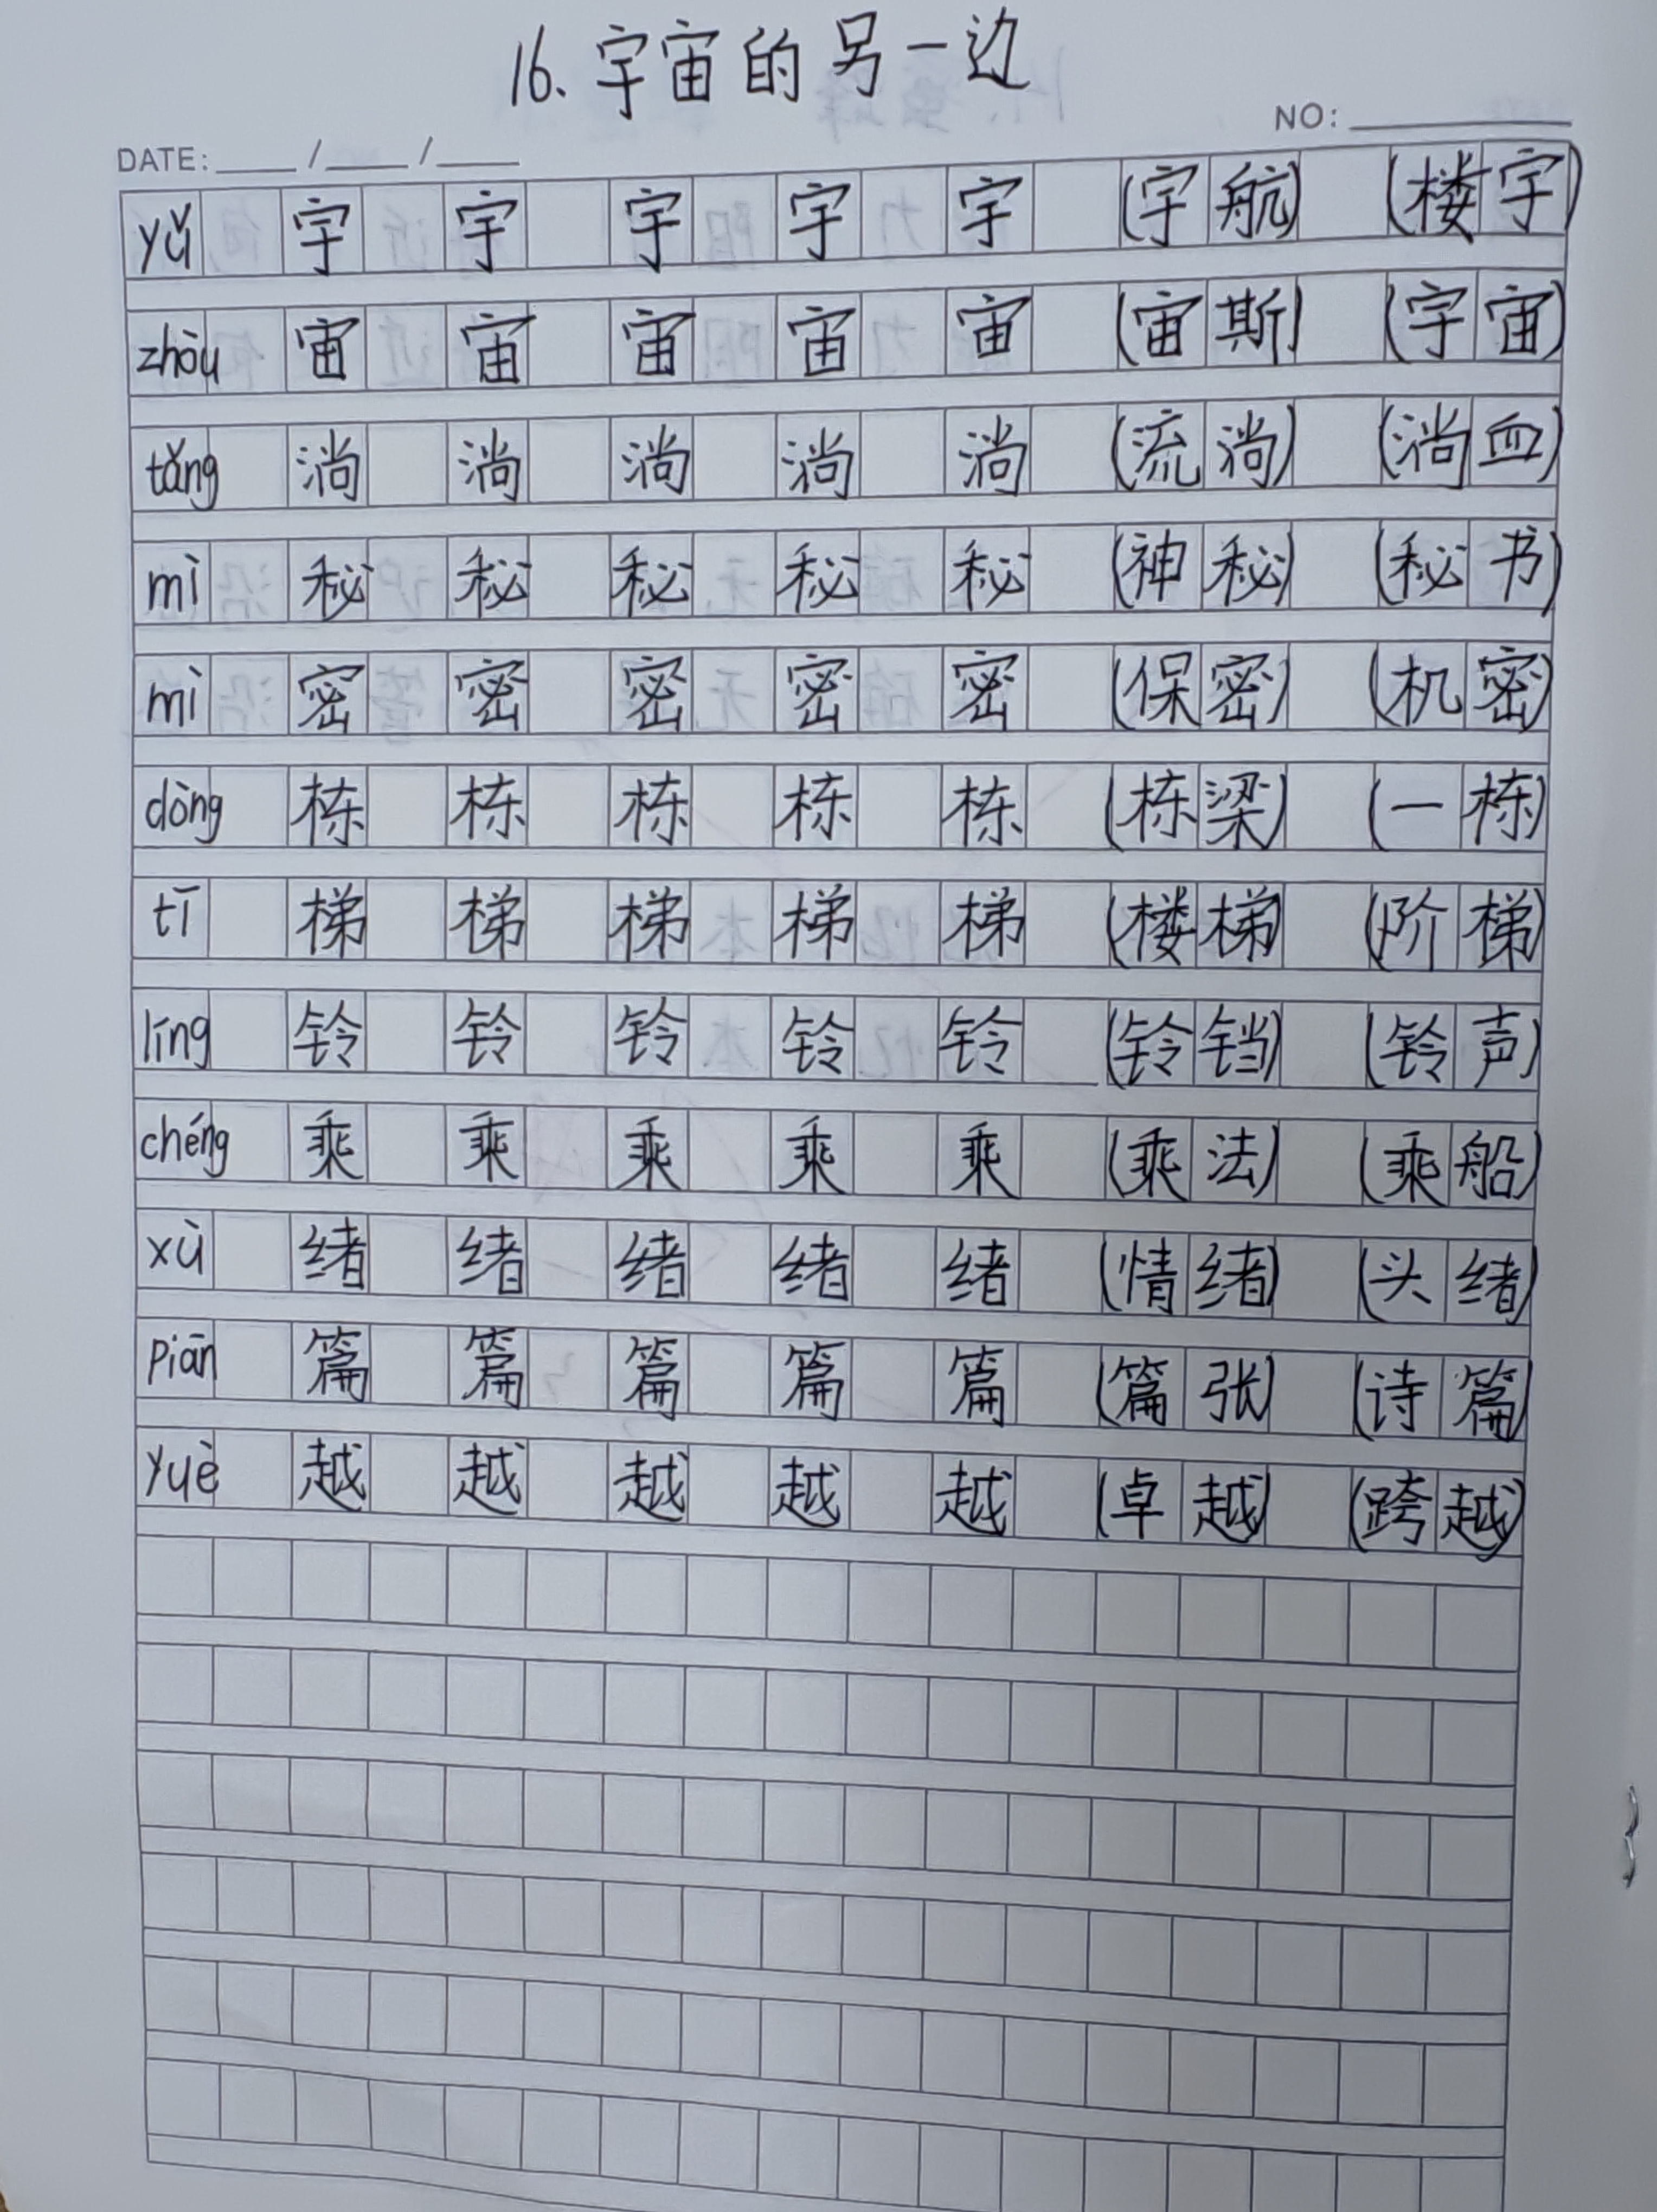 16.宇宙的另一边
NO:
DATE: / /
yǔ 宇 宇 宇 宇 宇 (宇航) (楼宇)
zhòu 宙 宙 宙 宙 宙 (宙斯) (宇宙)
tǎng 淌 淌 淌 淌 淌 (流淌) (淌血)
mì 秘 秘 秘 秘 秘 (神秘) (秘书)
mì 密 密 密 密 密 (保密) (机密)
dòng 栋 栋 栋 栋 栋 (栋梁) (一栋)
tī 梯 梯 梯 梯 梯 (楼梯) (阶梯)
líng 铃 铃 铃 铃 铃 (铃铛) (铃声)
chéng 乘 乘 乘 乘 乘 (乘法) (乘船)
xù 绪 绪 绪 绪 绪 (情绪) (头绪)
piān 篇 篇 篇 篇 篇 (篇张) (诗篇)
yuè 越 越 越 越 越 (卓越) (跨越)